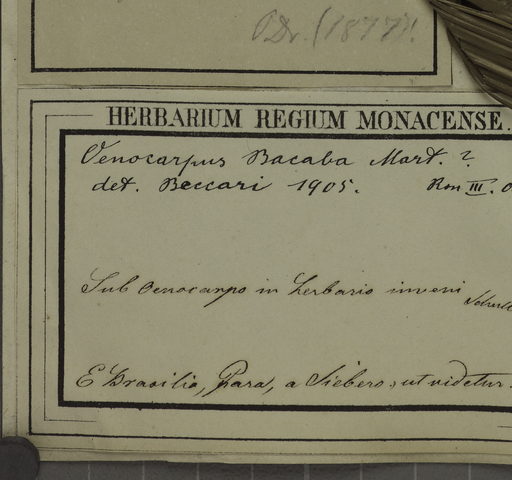 Dr. (1877)!
HERBARIUM REGIUM MONACENSE.
Oenocarpus Bacaba Mart. ?
det. Beccari 1905. Rm III.
Sub Oenocarpo in herbario inveni
E Brasilia, Para, a Siebero, ut videtur.